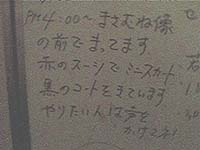 PM4:00〜まえむね像
の前でまってます
赤のスーツでミニスカート
黒のコートをきています
やりたい人は声を
かけてネ!